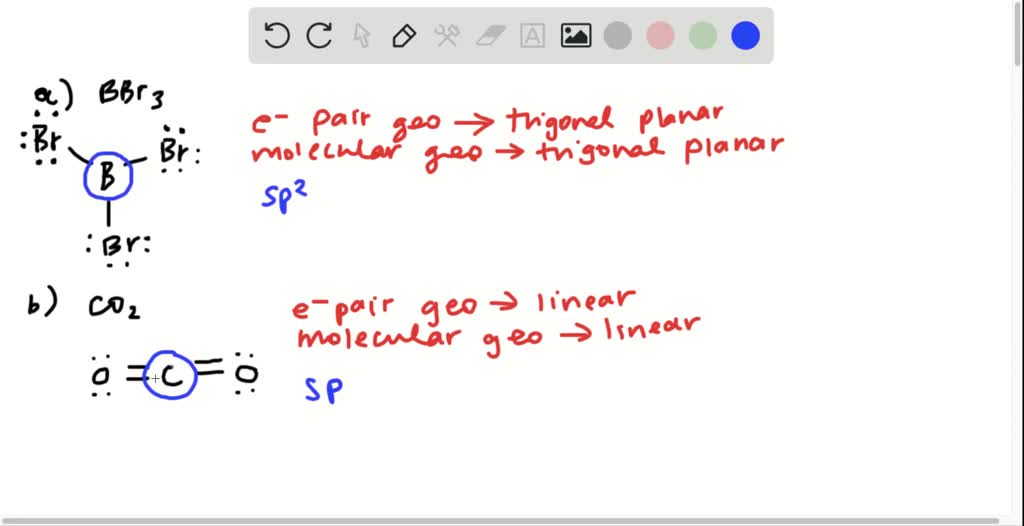 a) BBr3
:Br Br:
B
:Br:
e- pair geo → trigonal planar
molecular geo → trigonal planar
sp²
b) CO2
O = C = O
e- pair geo → linear
molecular geo → linear
sp